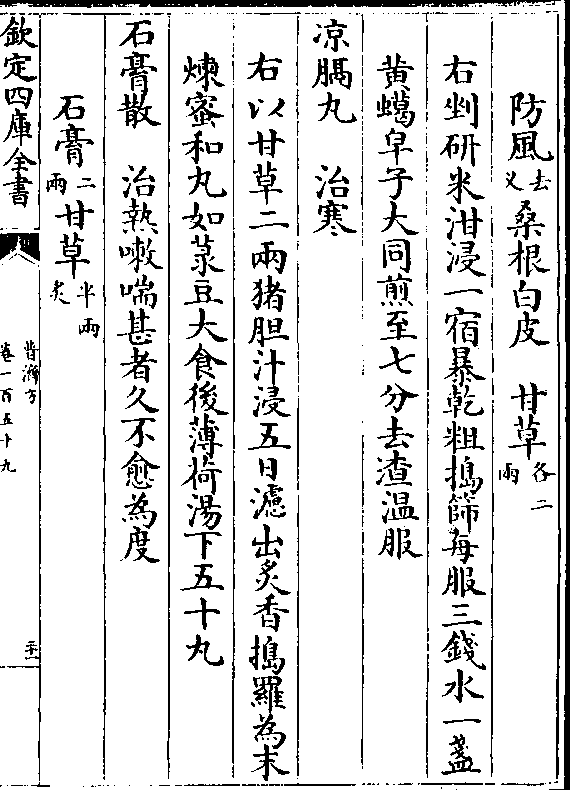 防風去叉桑根白皮 甘草各二兩
右剉研米泔浸一宿暴乾粗搗篩每服三錢水一盞
黄蠟皁子大同煎至七分去渣温服
凉膈丸 治寒
右以甘草二兩猪胆汁浸五日漉出炙香搗羅為末
煉蜜和丸如菉豆大食後薄荷湯下五十丸
石膏散 治熱嗽喘甚者久不愈為度
石膏二兩甘草半兩炙
欽定四庫全書
普濟方
卷一百五十九